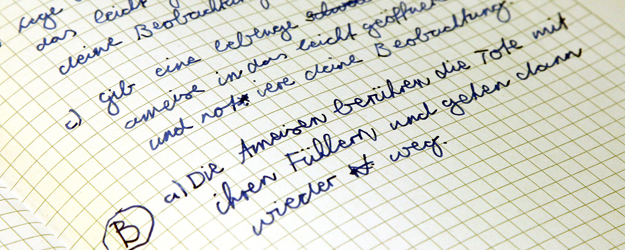 das leicht
deine Beobachtung
c) gib eine lebende
ameise in das leicht geöffnete
und notiere deine Beobachtung.
a) Die Ameisen berühren die Tote mit
ihren Fühlern und gehen dann
wieder weg.
B